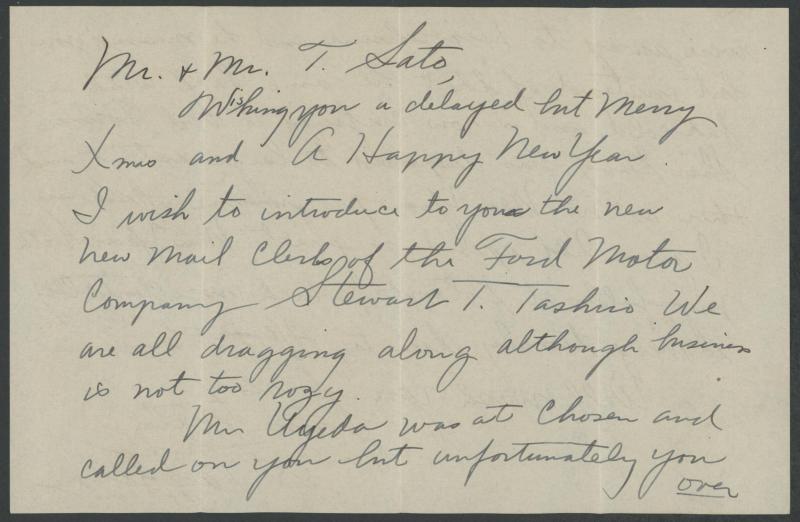 Mr. & Mr. T. Sato,
Wishing you a delayed but Merry
Xmas and A Happy New Year.
I wish to introduce to you the new
new mail clerk of the Ford Motor
Company Stewart T. Tashiro We
are all dragging along although business
is not too rozy.
Mr Uyeda was at Chosen and
called on you but unfortunately you
over